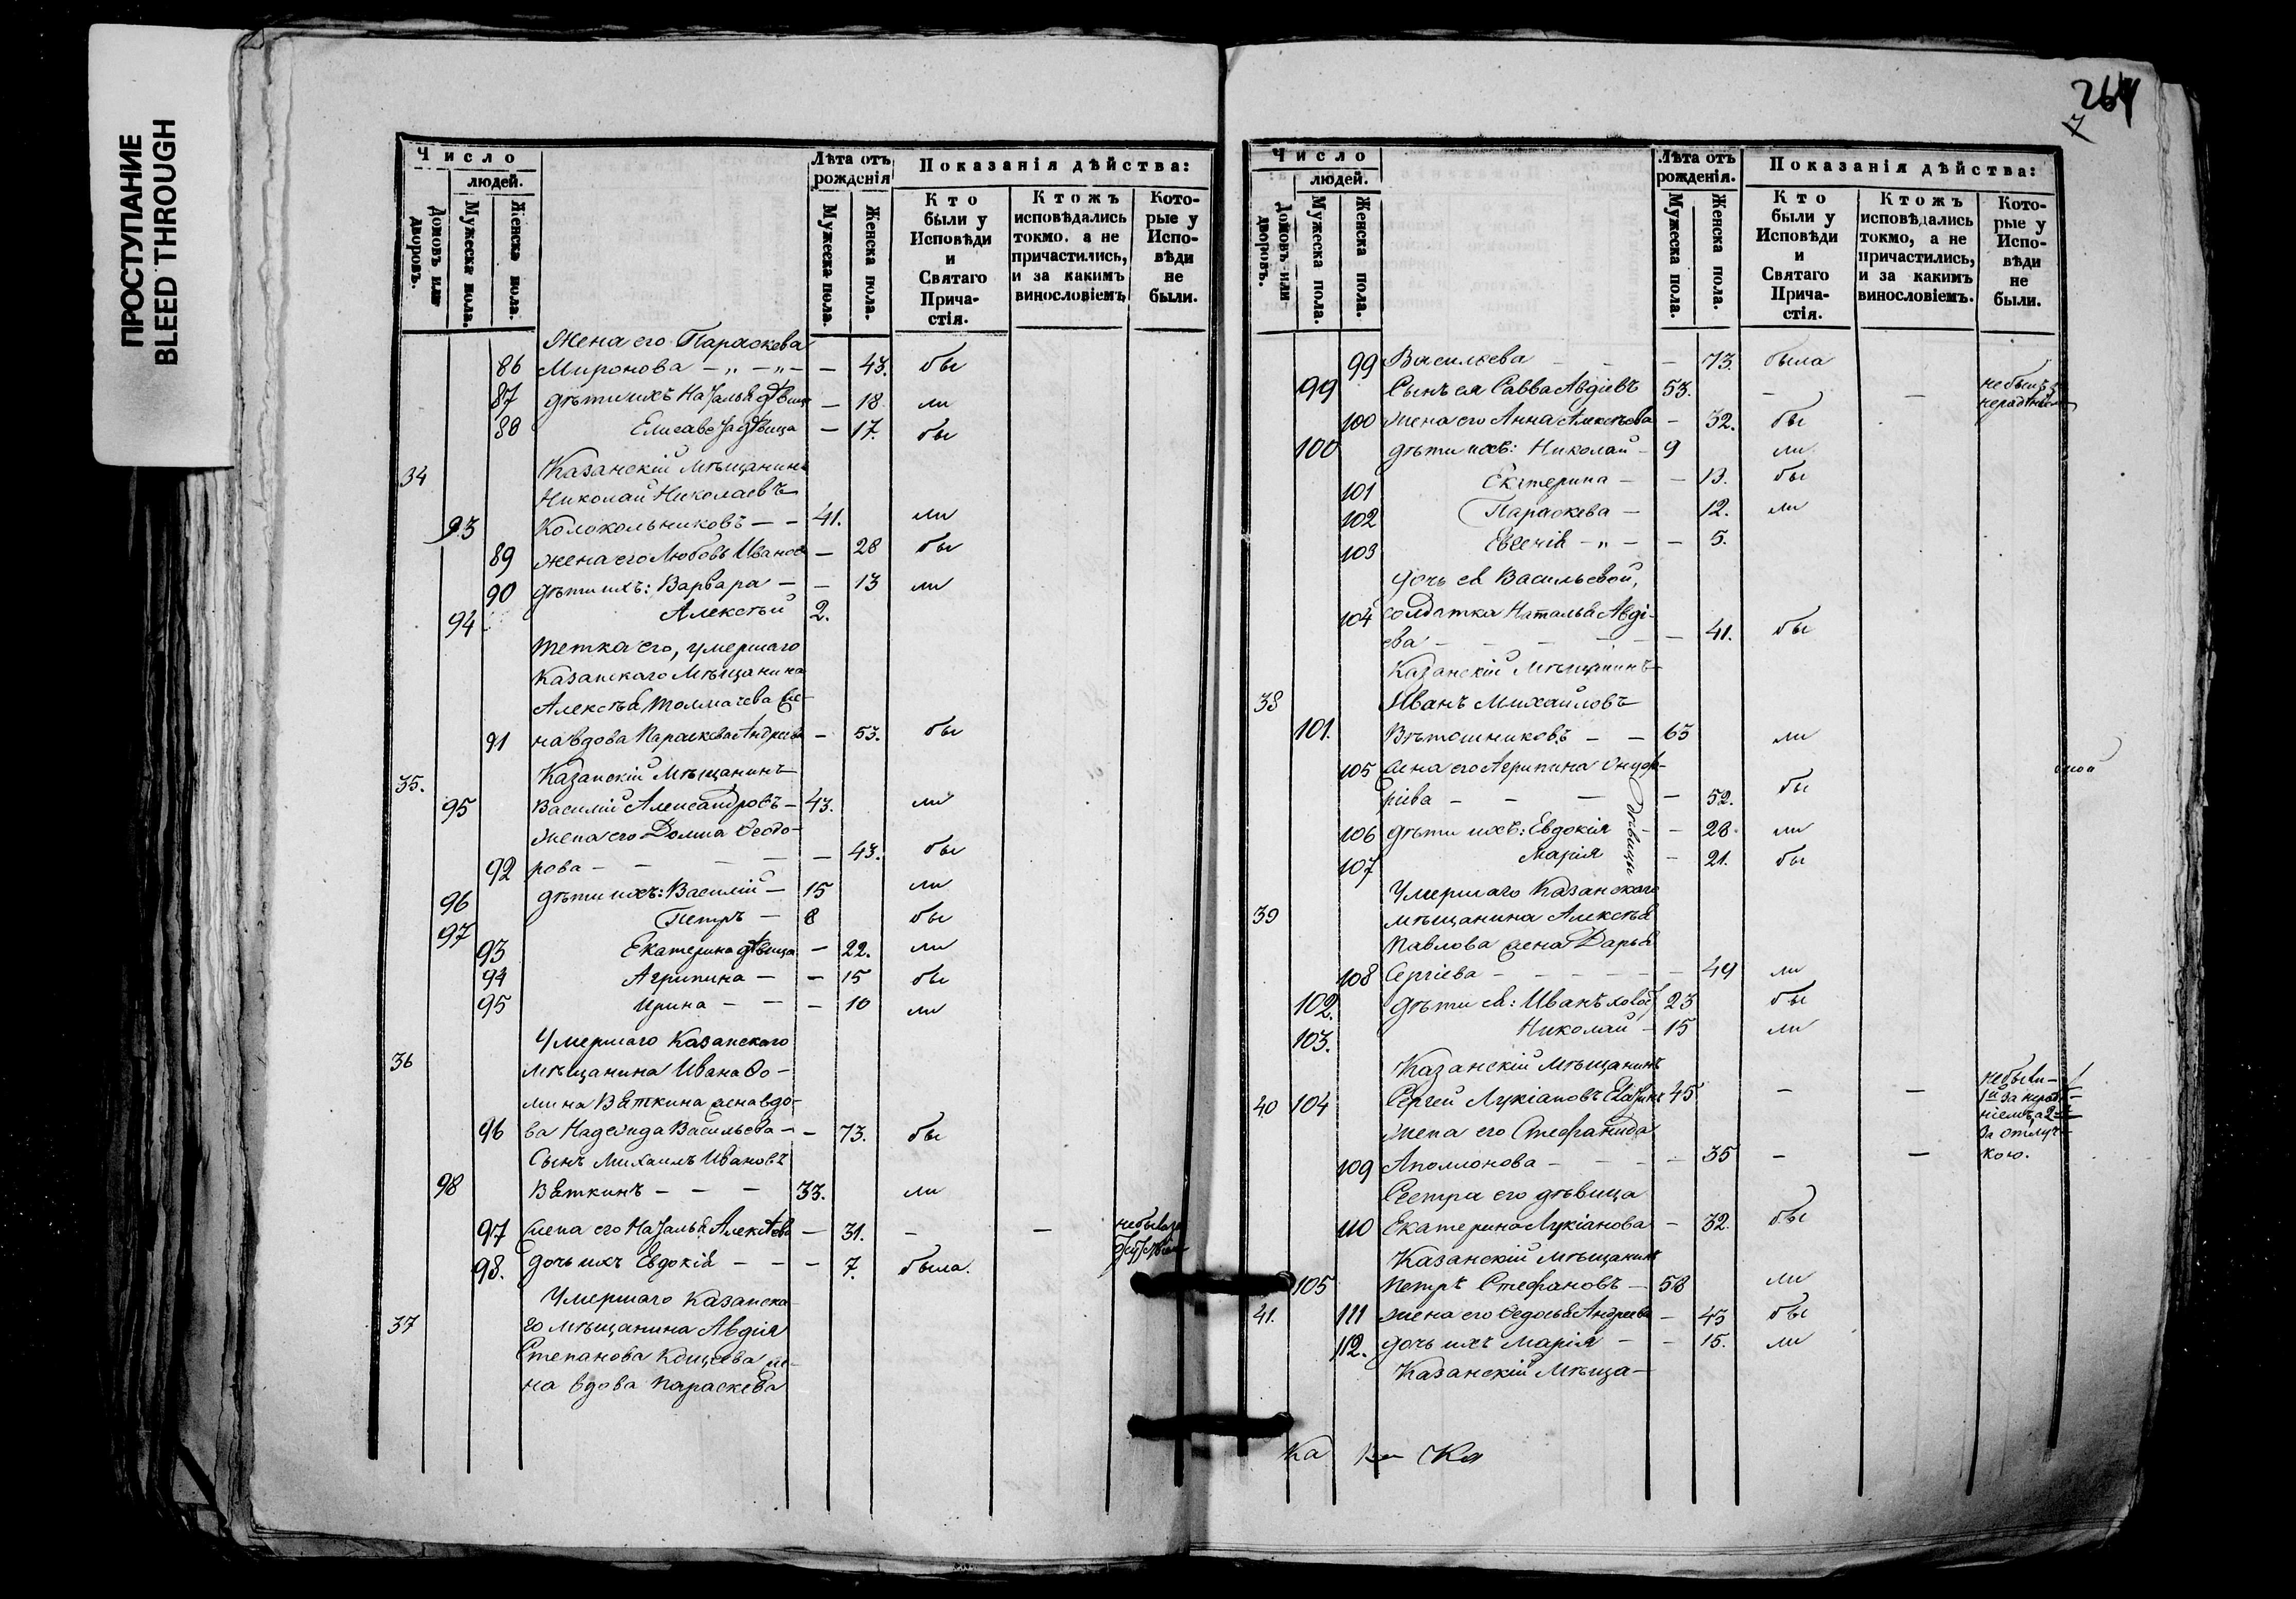 ПРОСТУПАНИЕ
BLEED THROUGH
Число
людей.
Домовъ или дворовъ.
Мужеска пола.
Женска пола.
Лѣта отъ рожденія
Мужеска пола.
Женска пола.
Показанія дѣйства:
Кто были у Исповѣди и Святаго Причастія.
Ктожъ исповѣдались токмо, а не причастились, и за какимъ винословіемъ
Которые у Исповѣди не были.
Жена его Параскева
86 Миронова — „ — „ — — 43. бы
87 дѣти ихъ Наталья дѣвица — 18 ли
88 Елисавета дѣвица — 17. бы
34 Казанскій мѣщанинъ
Николай Николаевъ
93 Колокольниковъ — — 41. ли
89 жена его Любовь Иванова — 28 бы
90 дѣти ихъ: Варвара — — 13 ли
94 Алексѣй 2.
тетка его, умершаго
Казанскаго Мѣщанина
Алексѣя Толмачева же-
91 на вдова Параскева Андреева — 53. бы
35. Казанскій Мѣщанинъ
95 Василій Александровъ — 43. ли
жена его Домна Ѳеодо-
92 рова — — — — — 43. бы
96 дѣти ихъ: Василій — 15 ли
97 Петръ — 8 бы
93 Екатерина дѣвица — 22. ли
94 Агрипина — — 15 бы
95 Ирина — — — 10 ли
Умершаго Казанскаго
36 мѣщанина Ивана Ѳо-
мина Вяткина жена вдо-
96 ва Надежда Васильева — — 73. бы
Сынъ Михаилъ Ивановъ
98 Вяткинъ — — — 33. ли
97 жена его Наталья Алексѣева — 31. — —
98. дочь ихъ Евдокія — — — 7. была.
Умершаго Казанска-
37 го мѣщанина Авдія
Степанова же-
на вдова Параскева
264
7
Число
людей.
Домовъ или дворовъ.
Мужеска пола.
Женска пола.
Лѣта отъ рожденія.
Мужеска пола.
Женска пола.
Показанія дѣйства:
Кто были у Исповѣди и Святаго Причастія.
Ктожъ исповѣдались токмо, а не причастились, и за какимъ винословіемъ.
Которые у Исповѣди не были.
99 Васильева — — — 73. была
99 Сынъ ея Савва Авдіевъ 53. — — не былъ
100 жена его Анна Алексѣева — 32. бы
100 дѣти ихъ: Николай — 9 ли
101 Екатерина — — 13. бы
102 Параскева — 12. ли
103 Евгенія — „ — — 5.
дочь ея Васильевой,
104 солдатка Наталья Авді-
ева — — — — — 41. бы
Казанскій Мѣщанинъ
38 Иванъ Михайловъ
101. Вѣтошниковъ — — 65 ли
105 жена его Агрипина Онуф-
ріева — — — — 52. бы
106 дѣти ихъ: Евдокія — — 28. ли
107 Марія — 21. бы
дѣвицы
Умершаго Казанскаго
39 мѣщанина Алексѣя
Павлова жена Дарья
108 Сергіева — — — — — 49 ли
102. дѣти ея: Иванъ холостъ 23 бы
103. Николай — 15 ли
Казанскій мѣщанинъ
40 104 Сергей Лукіановъ 45 — — не были —
1й за нераде-
ніемъ, а 2я
за отлуч-
жена его Стефанида
109 Аполлонова — — — — 35 — — кою.
Сестра его дѣвица
110 Екатерина Лукіанова — 32. бы
Казанскій мѣщанинъ
105 Петръ Стефановъ — 58 ли
41. 111 жена его Ѳедосья Андреева — 45 бы
112. дочь ихъ Марія — — 15. ли
Казанскій Мѣща-